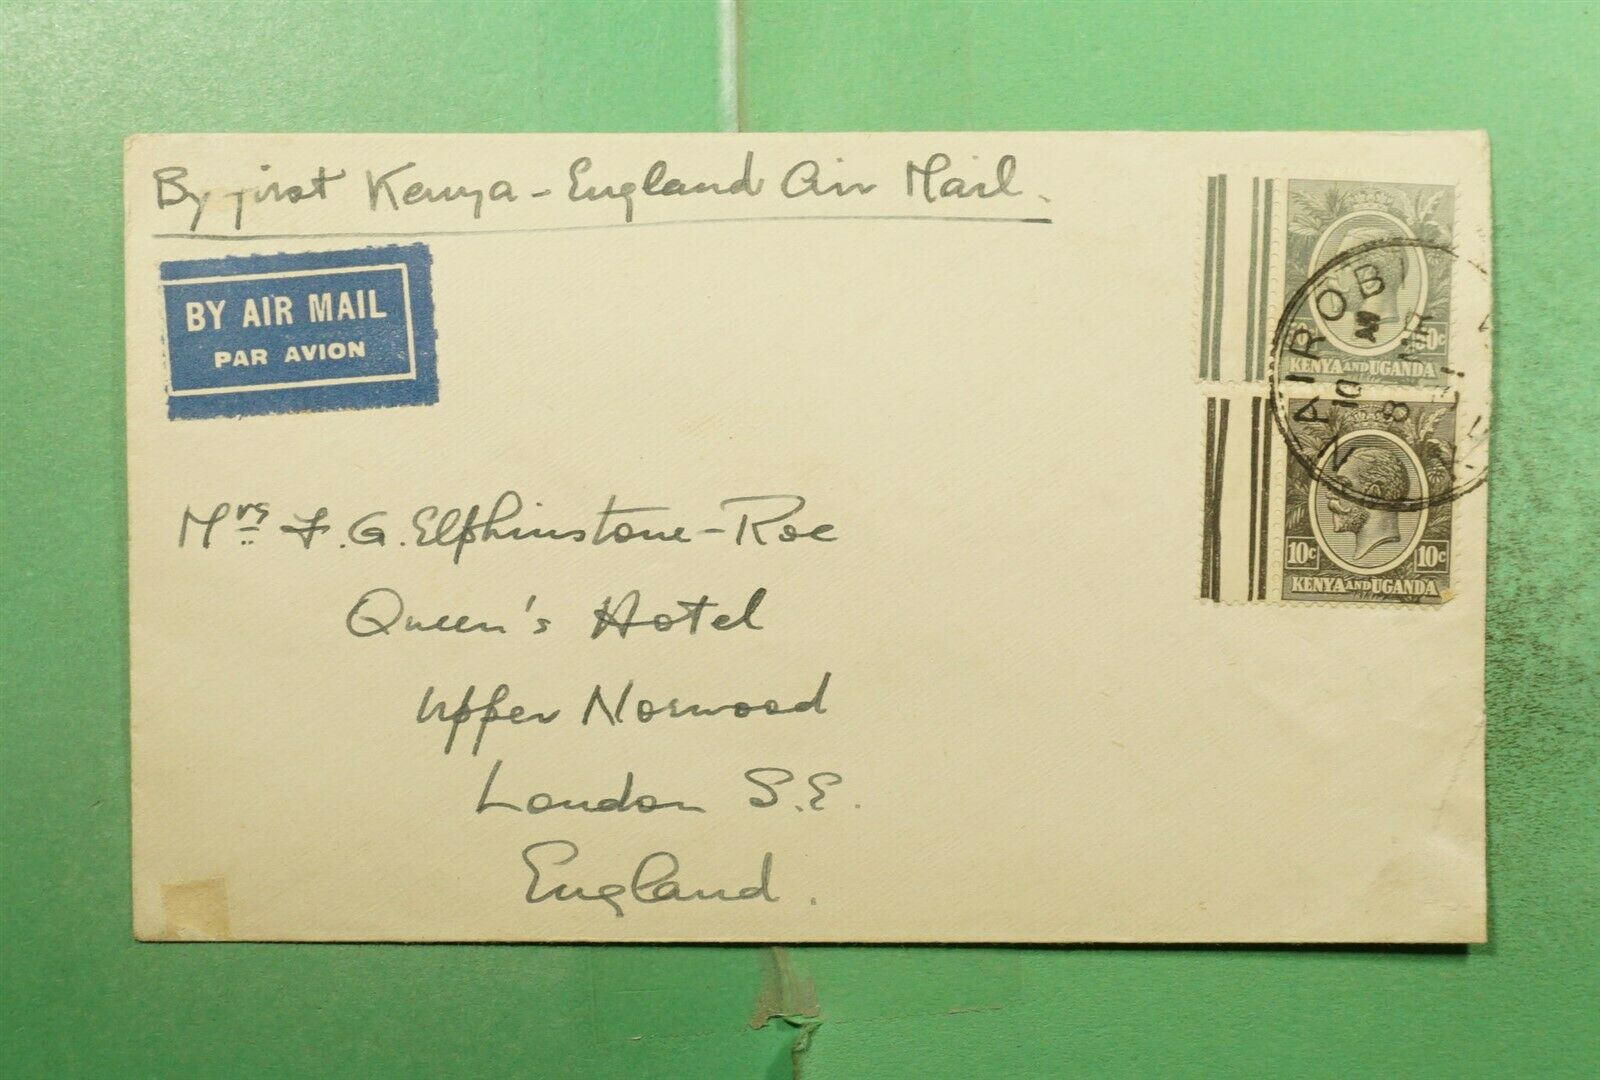 By first Kenya - England Air Mail.
BY AIR MAIL
PAR AVION
KENYA AND UGANDA
NAIROBI
10 AM
8 MR
10c 10c
KENYA AND UGANDA
Mrs F. G. Elphinstone-Roe
Queen's Hotel
Upper Norwood
London S.E.
England.